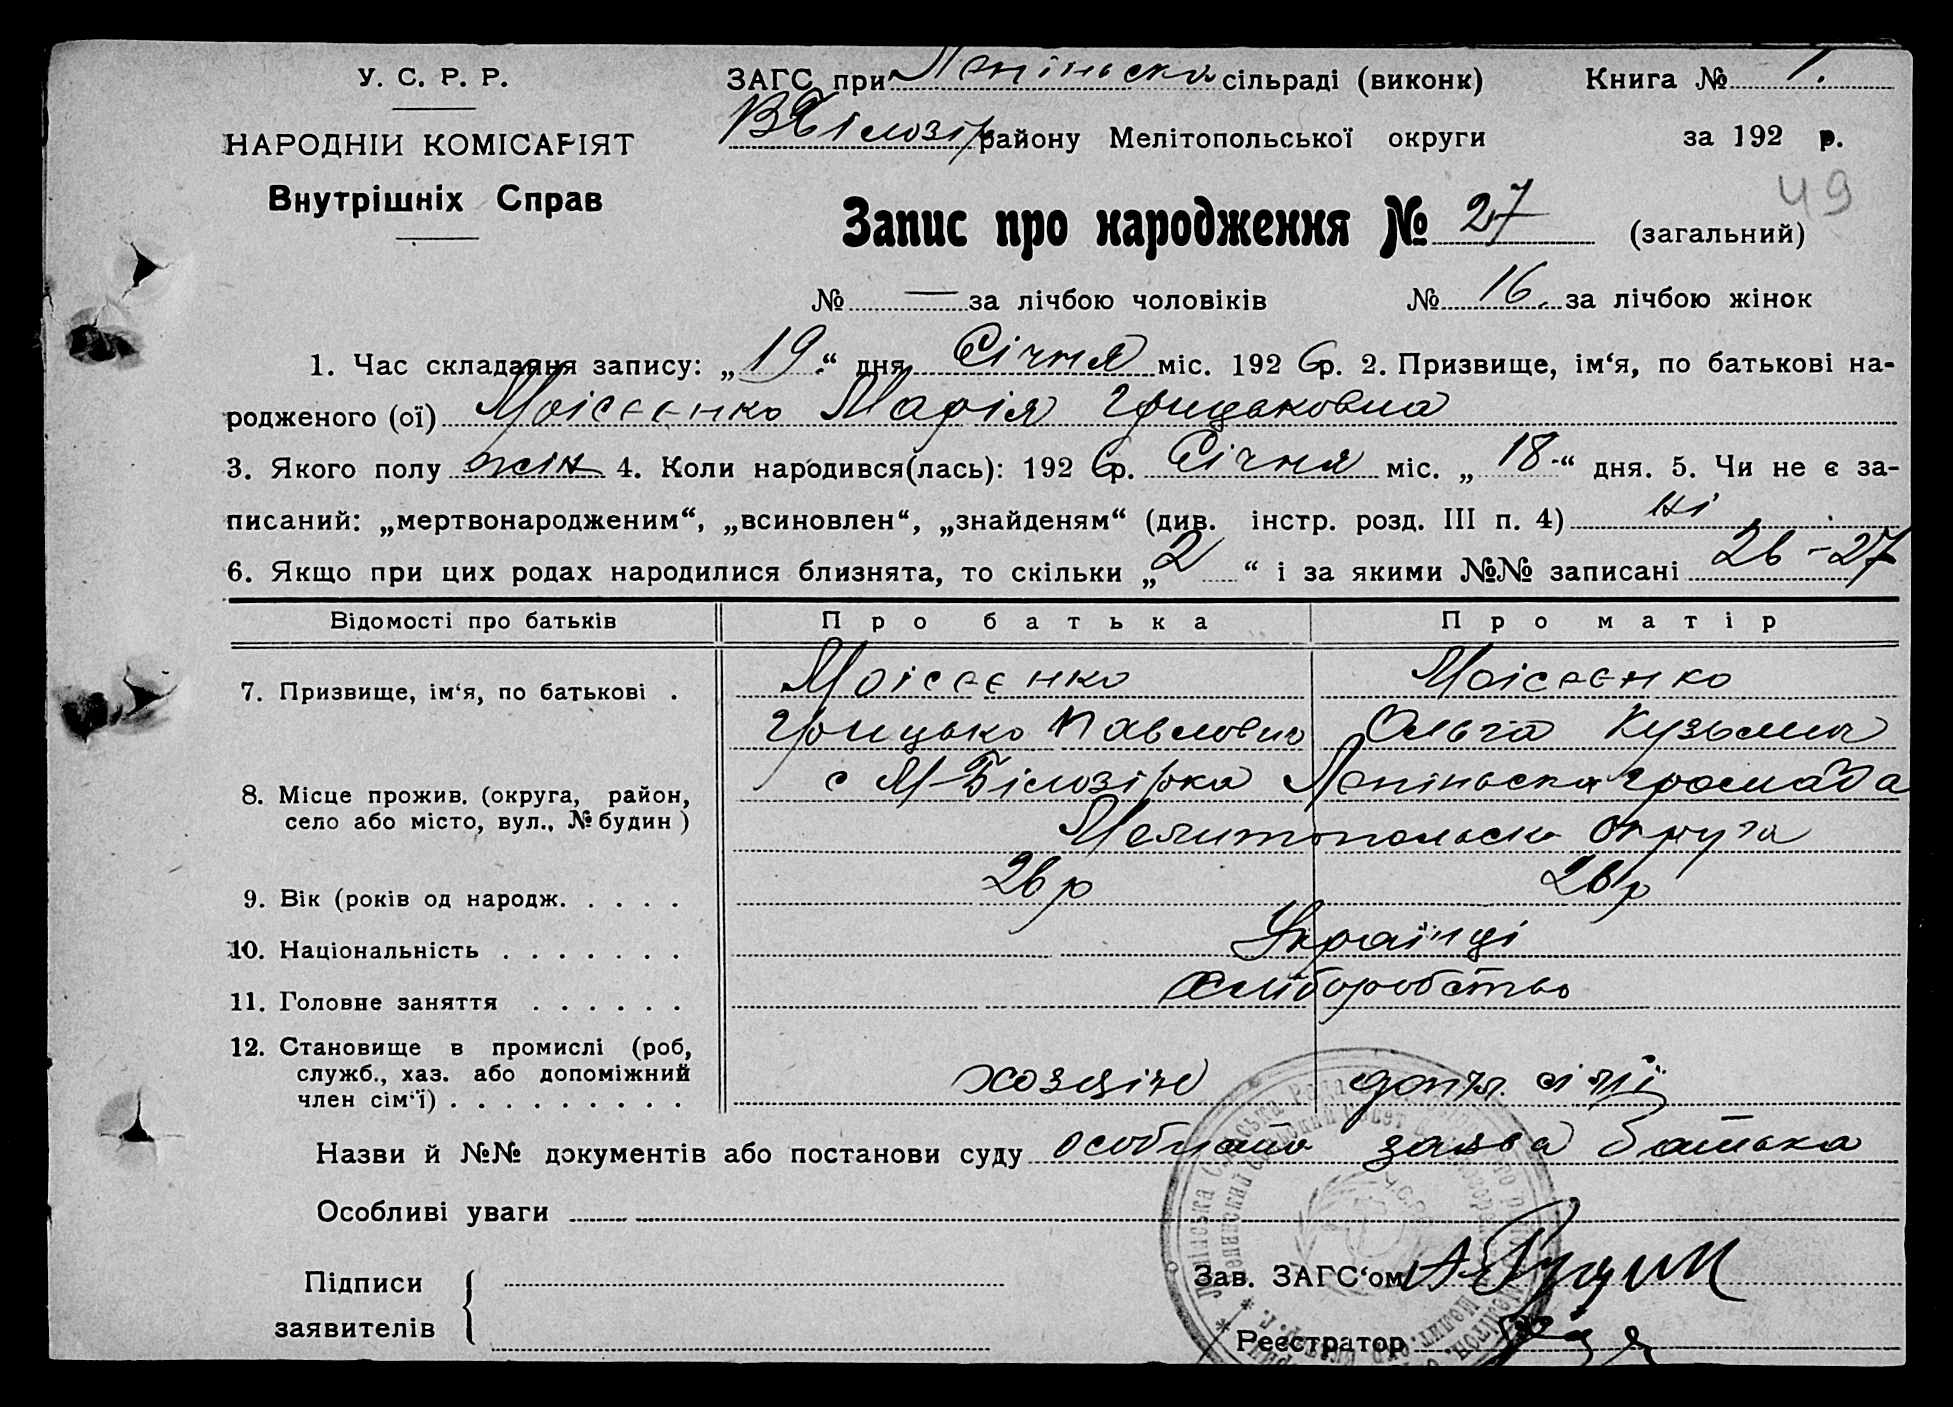 У. С. Р. Р.
НАРОДНІЙ КОМІСАРІЯТ
Внутрішніх Справ
ЗАГС при Леніньска сільраді (виконк)
Книга № 1.
В Білозір району Мелітопольської округи
за 192 р.
49
Запис про народження № 27 (загальний)
№ — за лічбою чоловіків № 16. за лічбою жінок
1. Час складання запису: „19.“ дня Січня міс. 192 6 р. 2. Призвище, ім‘я, по батькові на-
родженого (ої) Моісєєнко Марія Грицьковна
3. Якого полу жін 4. Коли народився(лась): 192 6 р. Січня міс. „18.“ дня. 5. Чи не є за-
писаний: „мертвонародженим“, „всиновлен“, „знайденям“ (див. інстр. розд. III п. 4) ні
6. Якщо при цих родах народилися близнята, то скільки „2“ і за якими №№ записані 26-27
Відомості про батьків Про батька Про матір
7. Призвище, ім‘я, по батькові . Моісєєнко Моісєєнко
Грицько Павлович Ольга Кузьмин
8. Місце прожив. (округа, район, село або місто, вул., № будин ) с М-Білозірка Леніньска громада
Мелитопольска округа
9. Вік (років од народж. . . . . 26 р 26 р
10. Національність . . . . . . . Українці
11. Головне заняття . . . . . . Хліборобство
12. Становище в промислі (роб, служб., хаз. або допоміжний член сім‘ї) . . . . . . . . . хозяін доп чл. сімї
Назви й №№ документів або постанови суду особиста заява батька
Особливі уваги
Підписи
заявителів
Зав. ЗАГС‘ом
Реєстратор